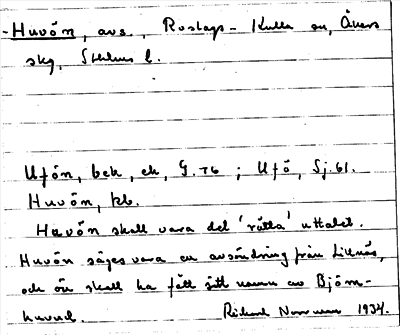 -Huvön, avs., Roslags-Kulla sn, Åkers
skg, Sthlms l.
Ufön, bek, ek, G.76; Ufö, Sj.61.
Huvön, kb.
Huvön skall vara det 'rätta' uttalet.
Huvön säges vara en avsöndring från Lillnäs,
och ön skall ha fått sitt namn av Björn-
huvud. Rickard 1934.